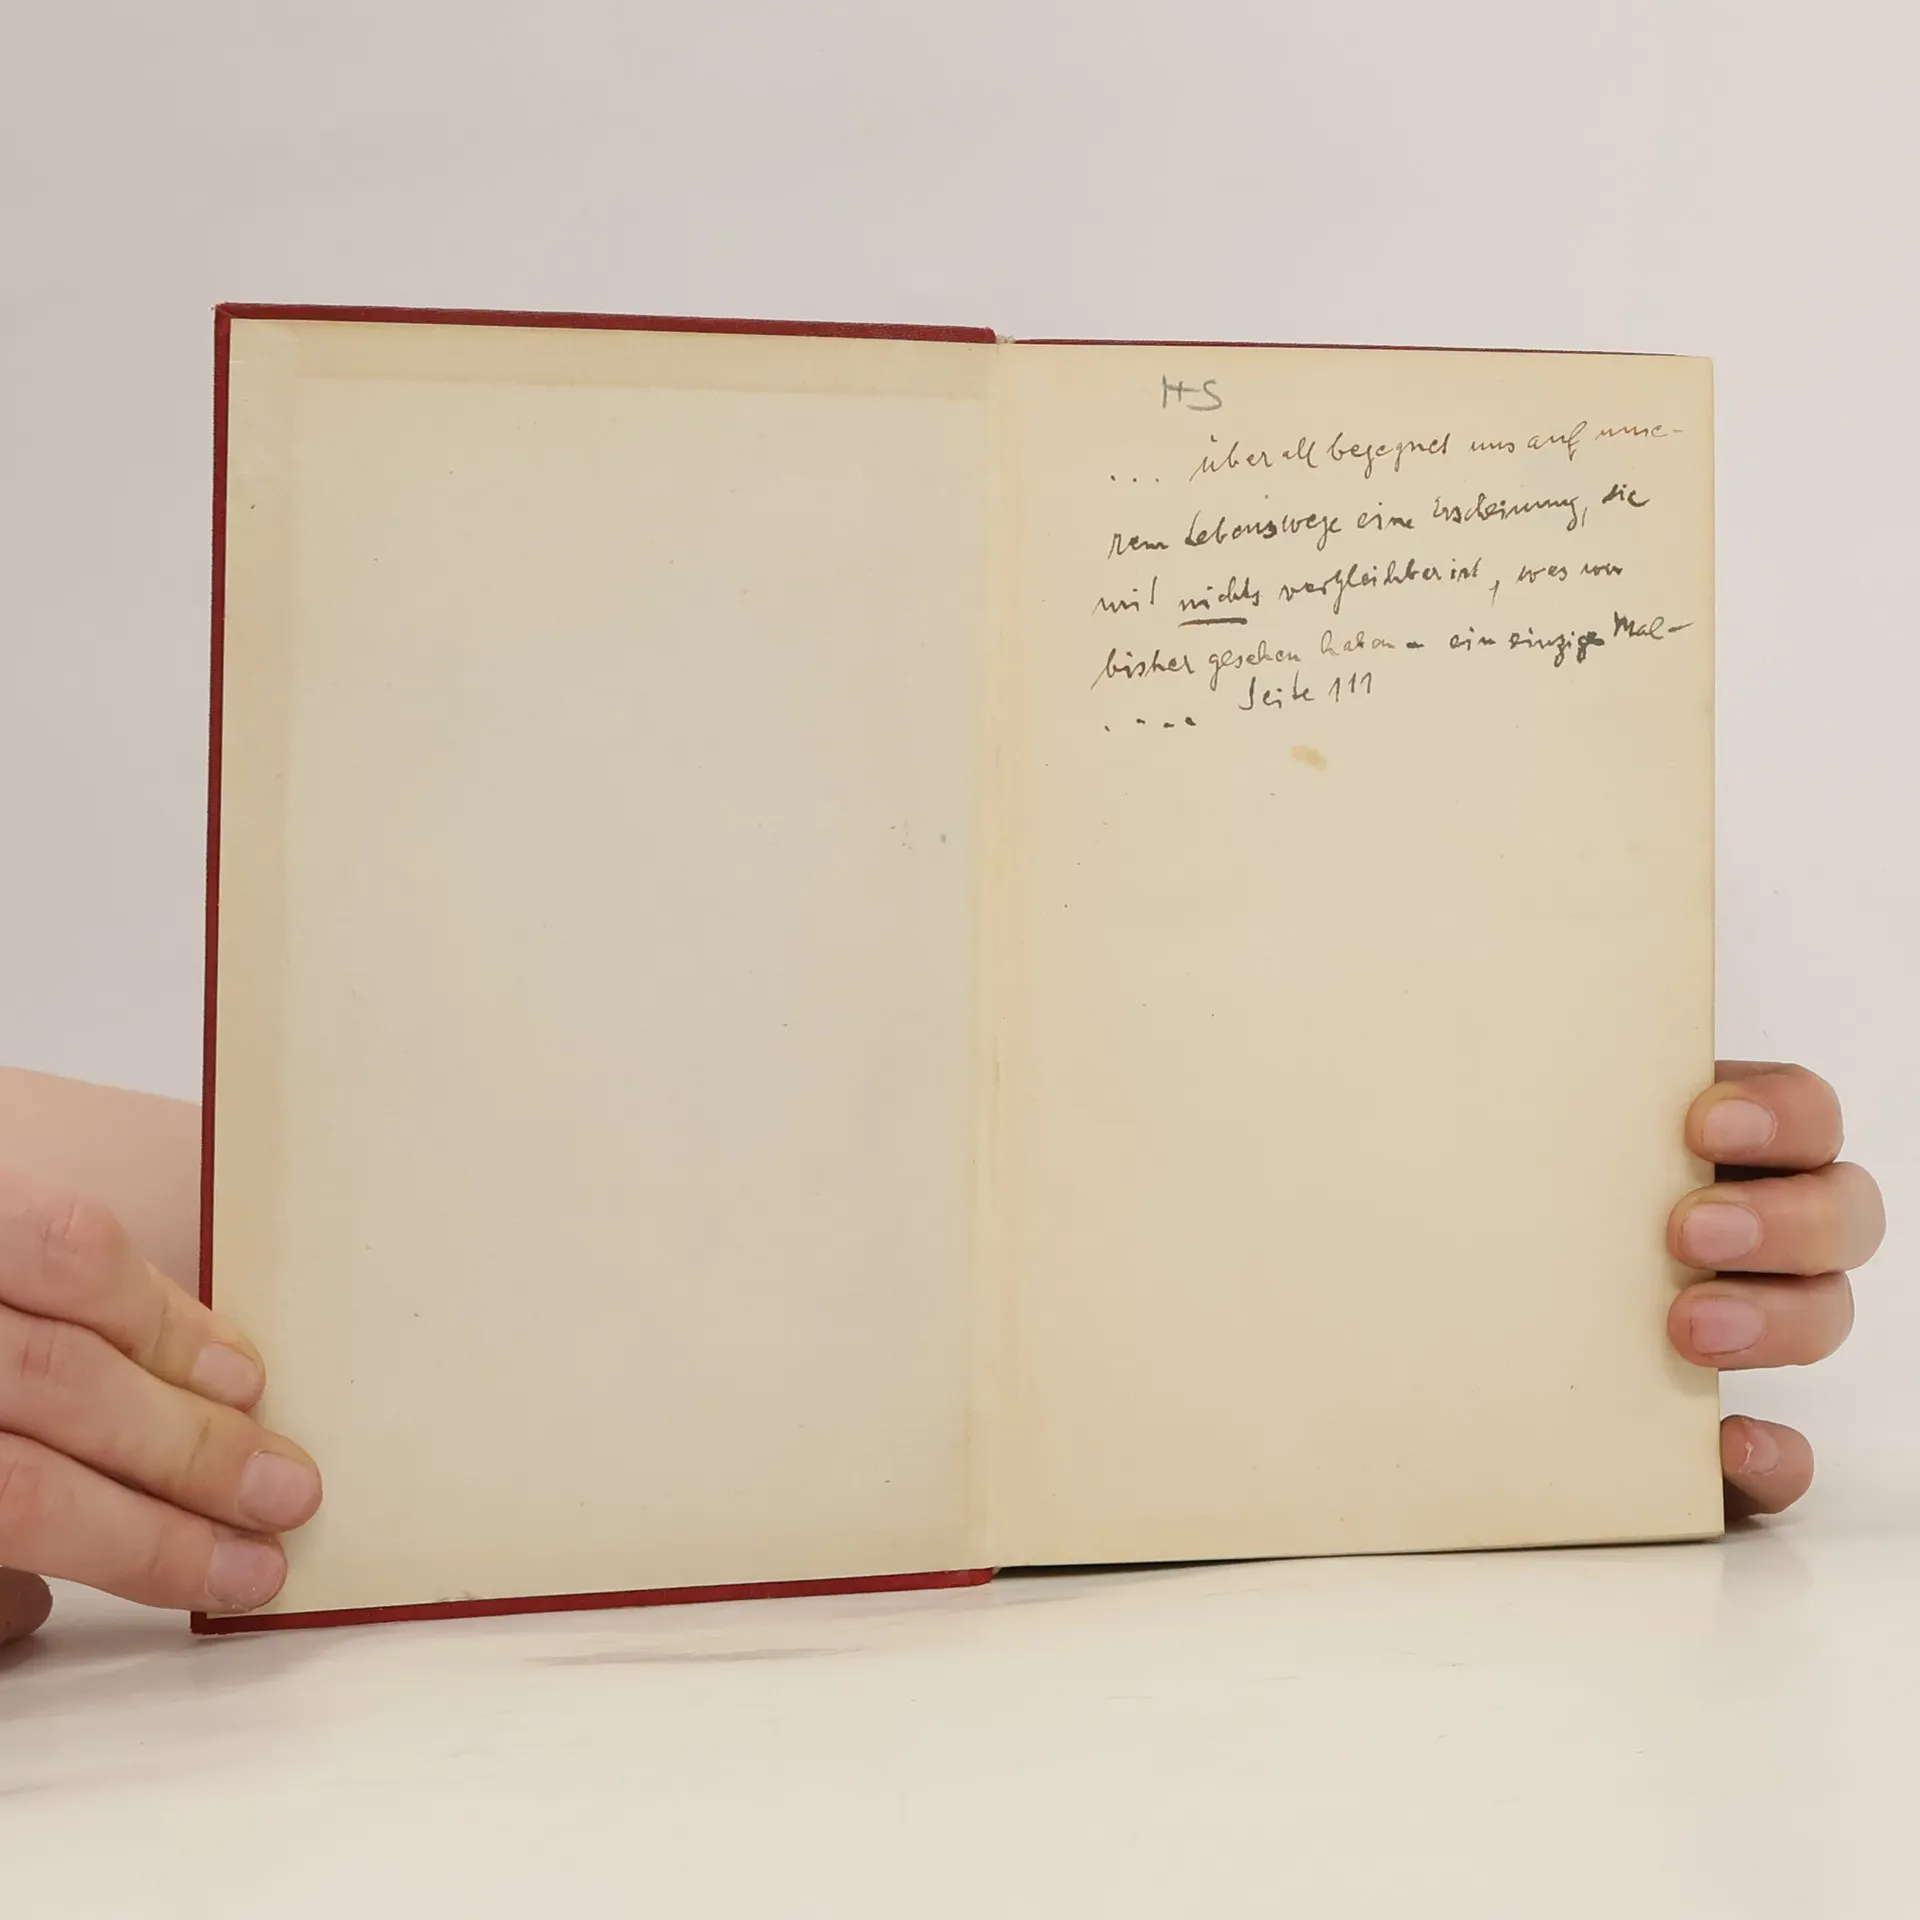 HS
... überall begegnet uns auf unse-
rem Lebenswege eine Erscheinung, die
mit nichts vergleichbar ist, was wir
bisher gesehen haben - ein einziges Mal -
.... Seite 111